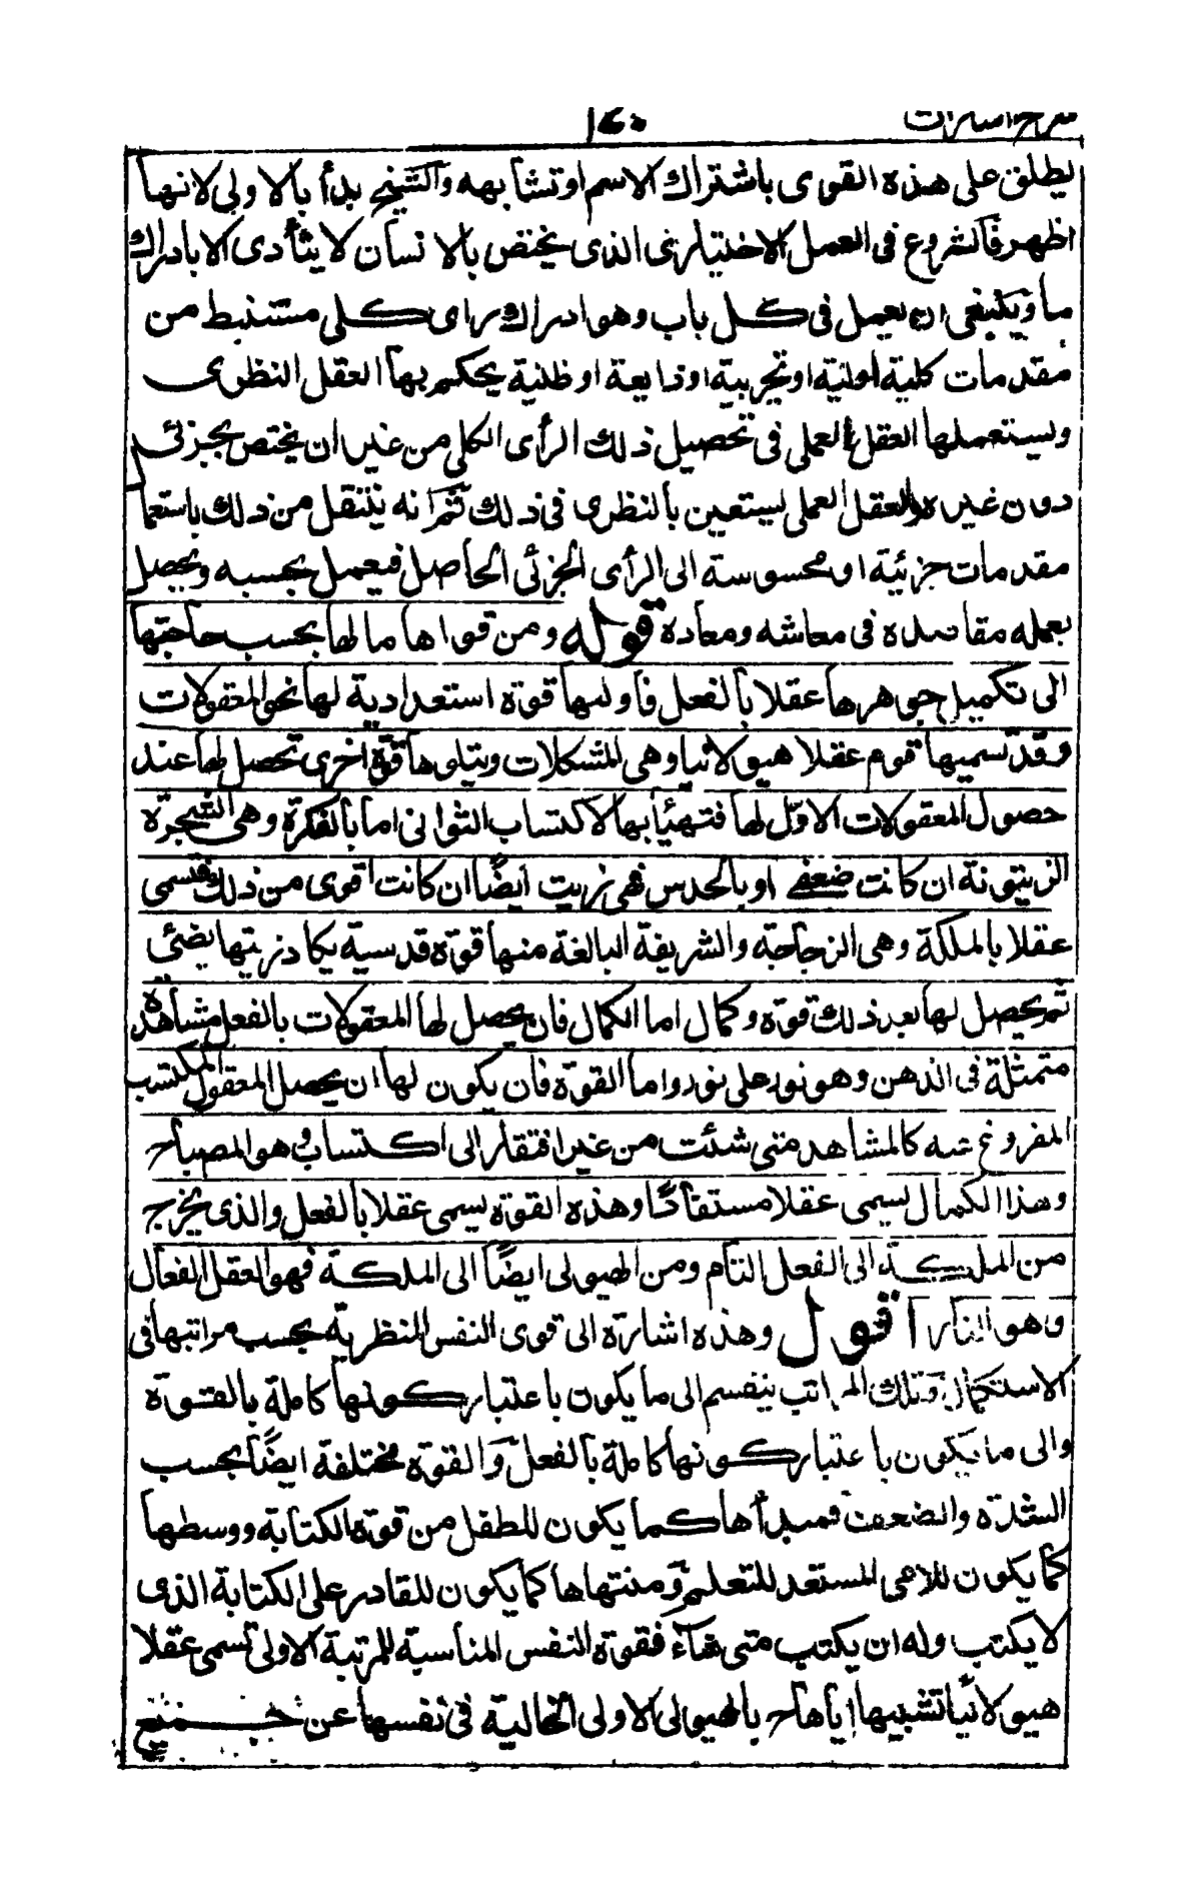 شرح اشارات ١٤٠
يطلق على هذه القوى باشتراك الاسم او تشابهه والشيخ بدأ بالاولى لانها
اظهر فالشروع فى العمل الاختيارى الذى يختص بالانسان لا يتأدى الا بادراك
ما ينبغى ان يعمل فى كل باب وهو ادراك راى كلى مستنبط من
مقدمات كلية اولية او تجربية او ذايعة او ظنية يحكم بها العقل النظرى
ويستعملها العقل العملى فى تحصيل ذلك الرأى الكلى من غير ان يختص بجزئى
دون غيره والعقل العملى يستعين بالنظرى فى ذلك ثم انه ينتقل من ذلك باستعمال
مقدمات جزئية او محسوسة الى الرأى الجزئى الحاصل فيعمل بحسبه ويحصل
بعمله مقاصده فى معاشه ومعاده قوله ومن قواها ما لها بحسب حاجتها
الى تكميل جوهرها عقلا بالفعل فاوليها قوة استعدادية لها نحو المعقولات
وقد يسميها قوم عقلا هيولانيا وهى المشكلات ويتلوها قوة اخرى تحصل لها عند
حصول المعقولات الاول لها فتهيأ بها لاكتساب الثوانى اما بالفكرة وهى الشجرة
الزيتونة ان كانت ضعفى او بالحدس فهى زيت ايضًا ان كانت اقوى من ذلك فتسمى
عقلا بالملكة وهى الزجاجة والشريفة البالغة منها قوة قدسية يكاد زيتها يضئى
ثم يحصل لها بعد ذلك قوة وكمال اما الكمال فان يحصل لها المعقولات بالفعل مشاهدة
متمثلة فى الذهن وهو نور على نور واما القوة فان يكون لها ان يحصل المعقول المكتسب
المفروغ منه كالمشاهد متى شئت من غير افتقار الى اكتساب وهو المصباح
وهذا الكمال يسمى عقلا مستفادًا وهذه القوة يسمى عقلا بالفعل والذى يخرج
من الملكة الى الفعل التام ومن الهيولى ايضًا الى الملكة فهو العقل الفعال
وهو النار اقول وهذه اشارة الى قوى النفس النظرية بحسب مراتبها فى
الاستكمال وتلك المراتب ينقسم الى ما يكون باعتبار كونها كاملة بالقوة
والى ما يكون باعتبار كونها كاملة بالفعل والقوة مختلفة ايضًا بحسب
الشدة والضعف فمبدأها كما يكون للطفل من قوة الكتابة ووسطها
كما يكون للامى المستعد للتعلم ومنتهاها كما يكون للقادر على الكتابة الذى
لا يكتب وله ان يكتب متى شاء فقوة النفس المناسبة للمرتبة الاولى تسمى عقلا
هيولانيا تشبيها اياها بالهيولى الاولى الخالية فى نفسها عن جميع